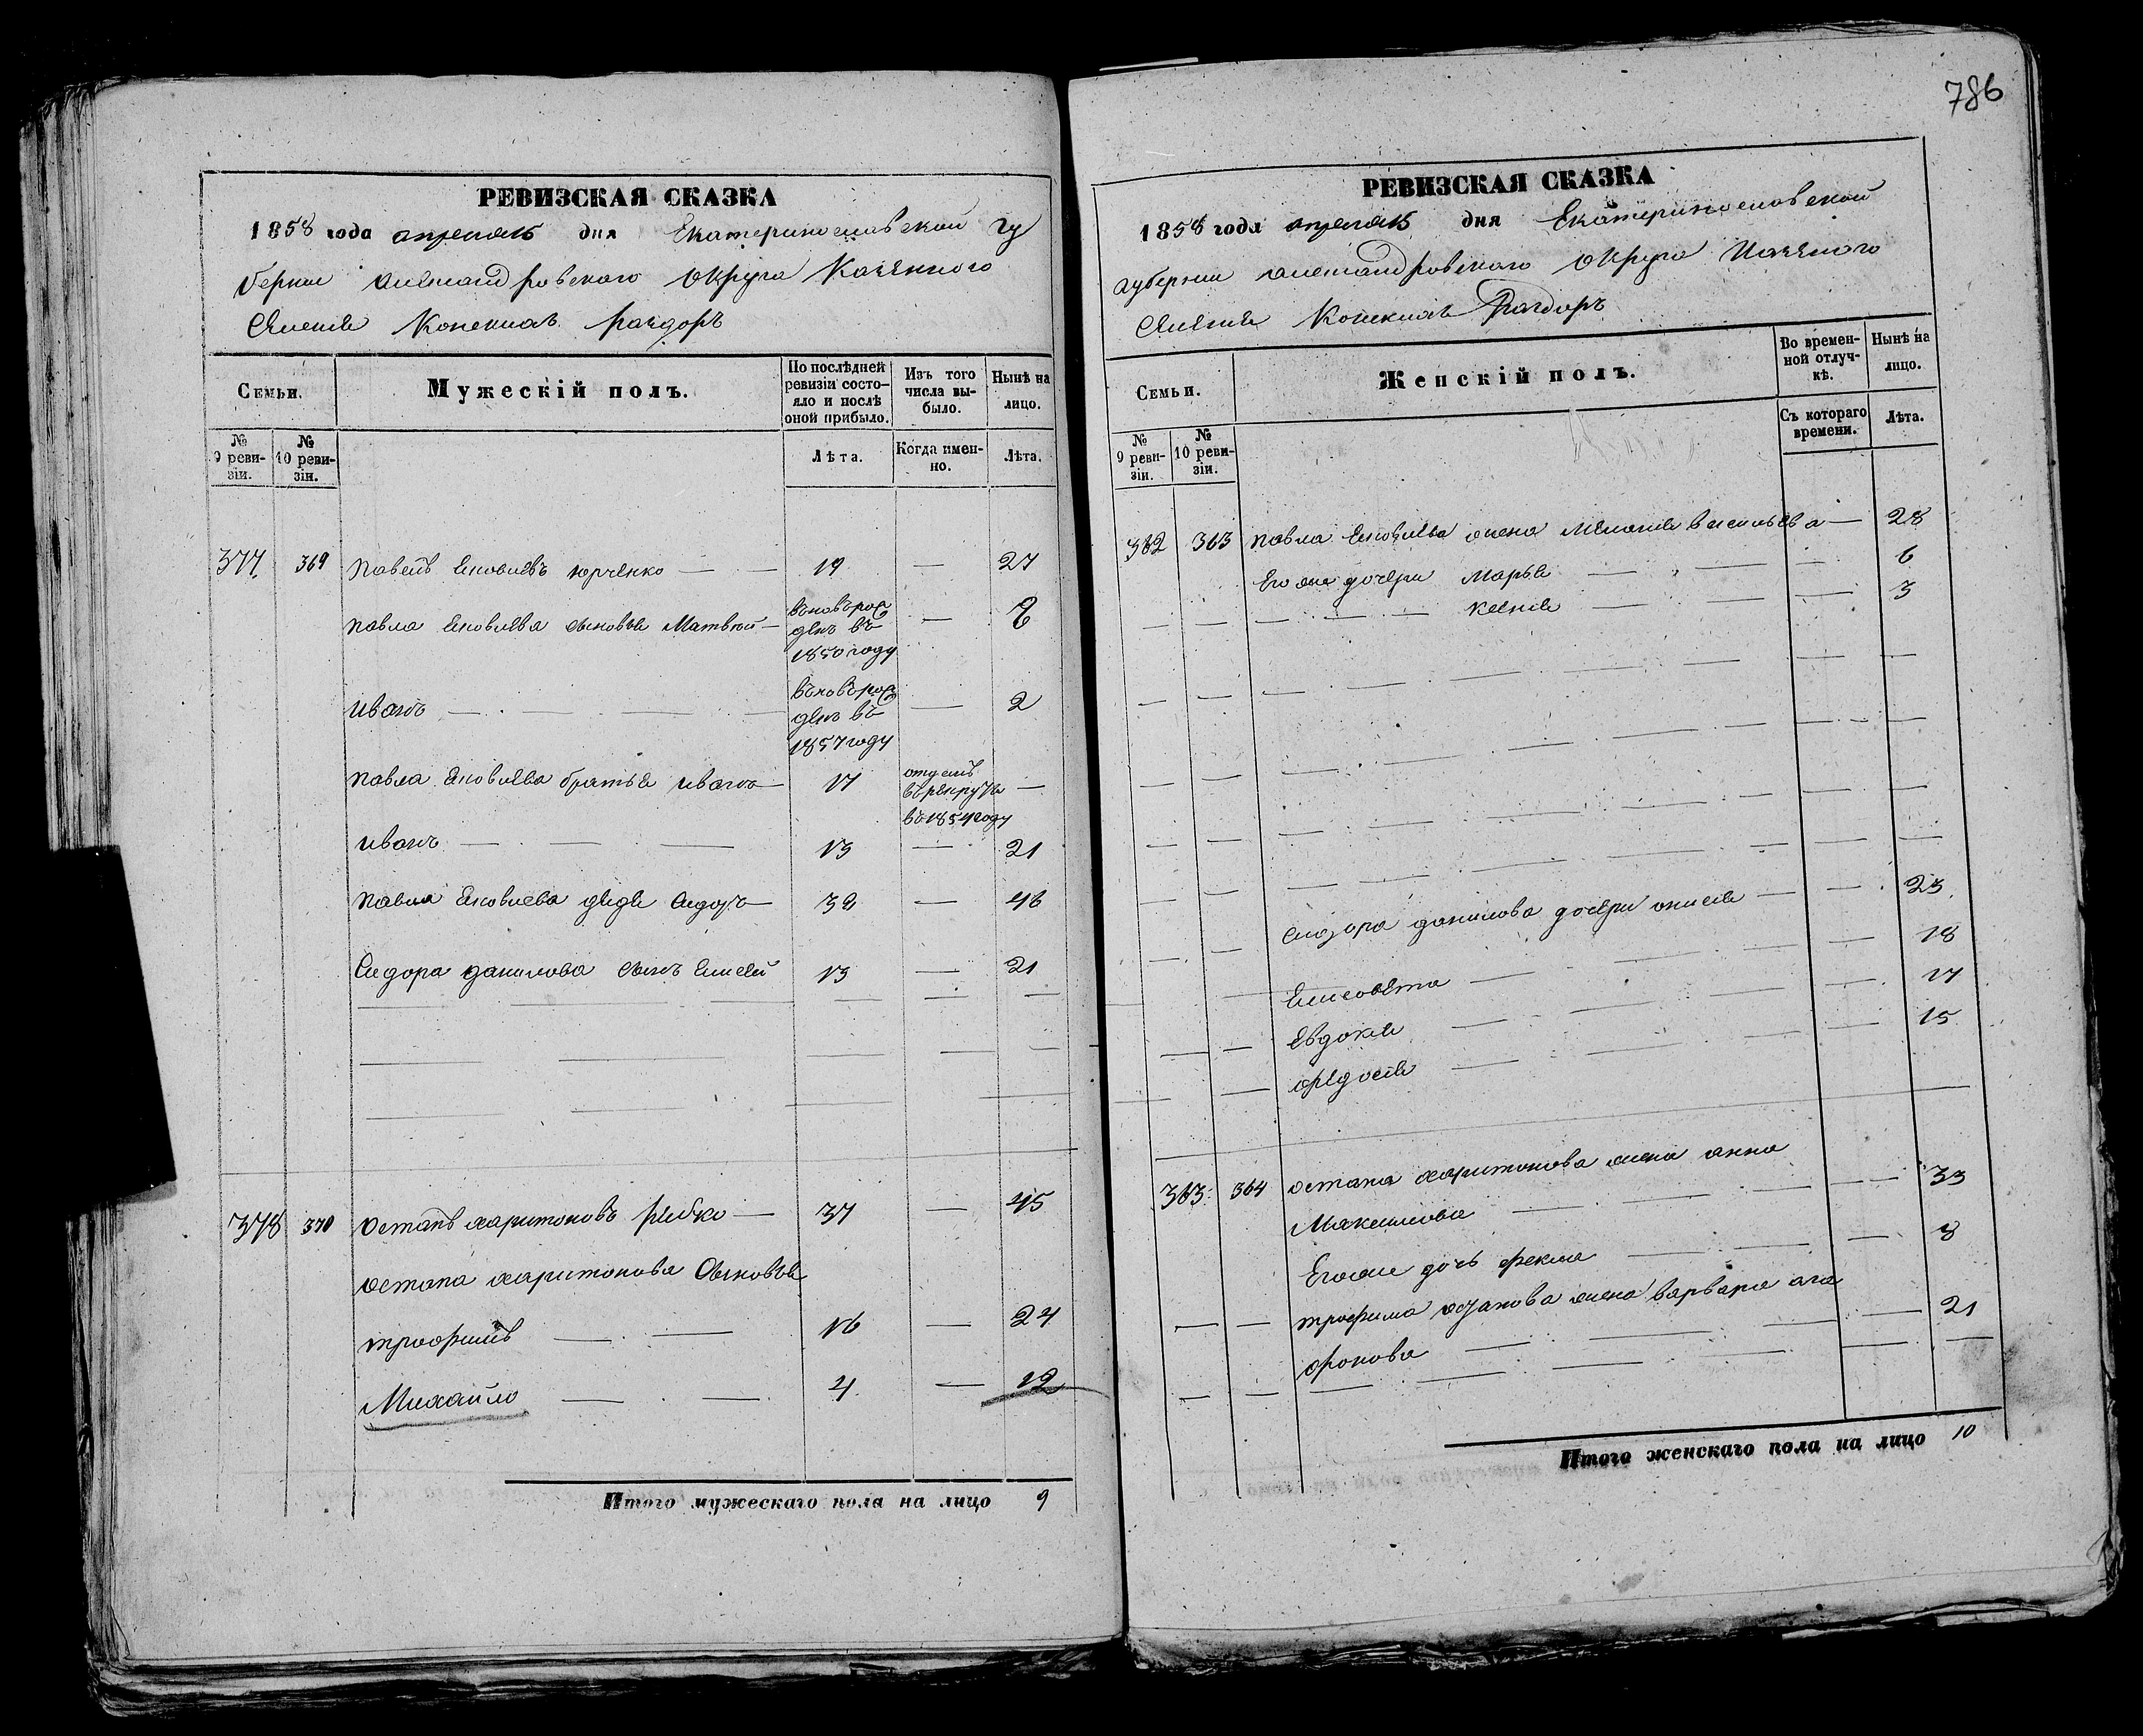 786
РЕВИЗСКАЯ СКАЗКА
1858 года апреля 15 дня Екатеринославской гу
бернии Александровского округа Казенного
Селения Конския Раздоръ
Семьи.
Мужескій полъ.
По послѣдней ревизіи состояло и послѣ оной прибыло.
Изъ того числа выбыло.
Нынѣ на лицо.
№ 9 ревизіи.
№ 10 ревизіи.
Лѣта.
Когда именно.
Лѣта.
377 369 Павелъ Яковлевъ Юрченко — 19 — 27
Павла Яковлева сыновья Матвѣй —
въновърож
денъ въ
1850 году
— 8
Иванъ —
въновърож
денъ въ
1857 году
— 2
Павла Яковлева братья Иванъ — 17
отданъ
въ рекруты
въ 1854 году
—
Иванъ — 13 — 21
Павла Яковлева дядя Сидоръ — 38 — 46
Сидора Данилова сынъ Елисей 13 — 21
378 370 Остапъ Харитоновъ Рибко — 37 — 45
Остапа Харитонова Сыновья
Трофимъ — 16 — 24
Михайло — 4 — 12
Итого мужескаго пола на лицо 9
РЕВИЗСКАЯ СКАЗКА
1858 года апреля 15 дня Екатеринославской
губернии Александровского округа Казеного
Селения Конския Раздоръ
Семьи.
Женскій полъ.
Во временной отлучкѣ.
Нынѣ на лицо.
№ 9 ревизіи.
№ 10 ревизіи.
Съ котораго времени.
Лѣта.
382 363 Павла Яковлева жена Мелания Васильева — 28
Его же дочери Марья — 6
Ксения — 3
Сидора Данилова дочери Анисия — 23
Елисовета — 18
Евдокия — 17
Федосия — 15
383 364 Остапа Харитонова жена Анна
Максимова — 33
Его же дочь Фекла — 8
Трофима Остапова жена Варвара Ага
фонова — 21
Итого женскаго пола на лицо 10